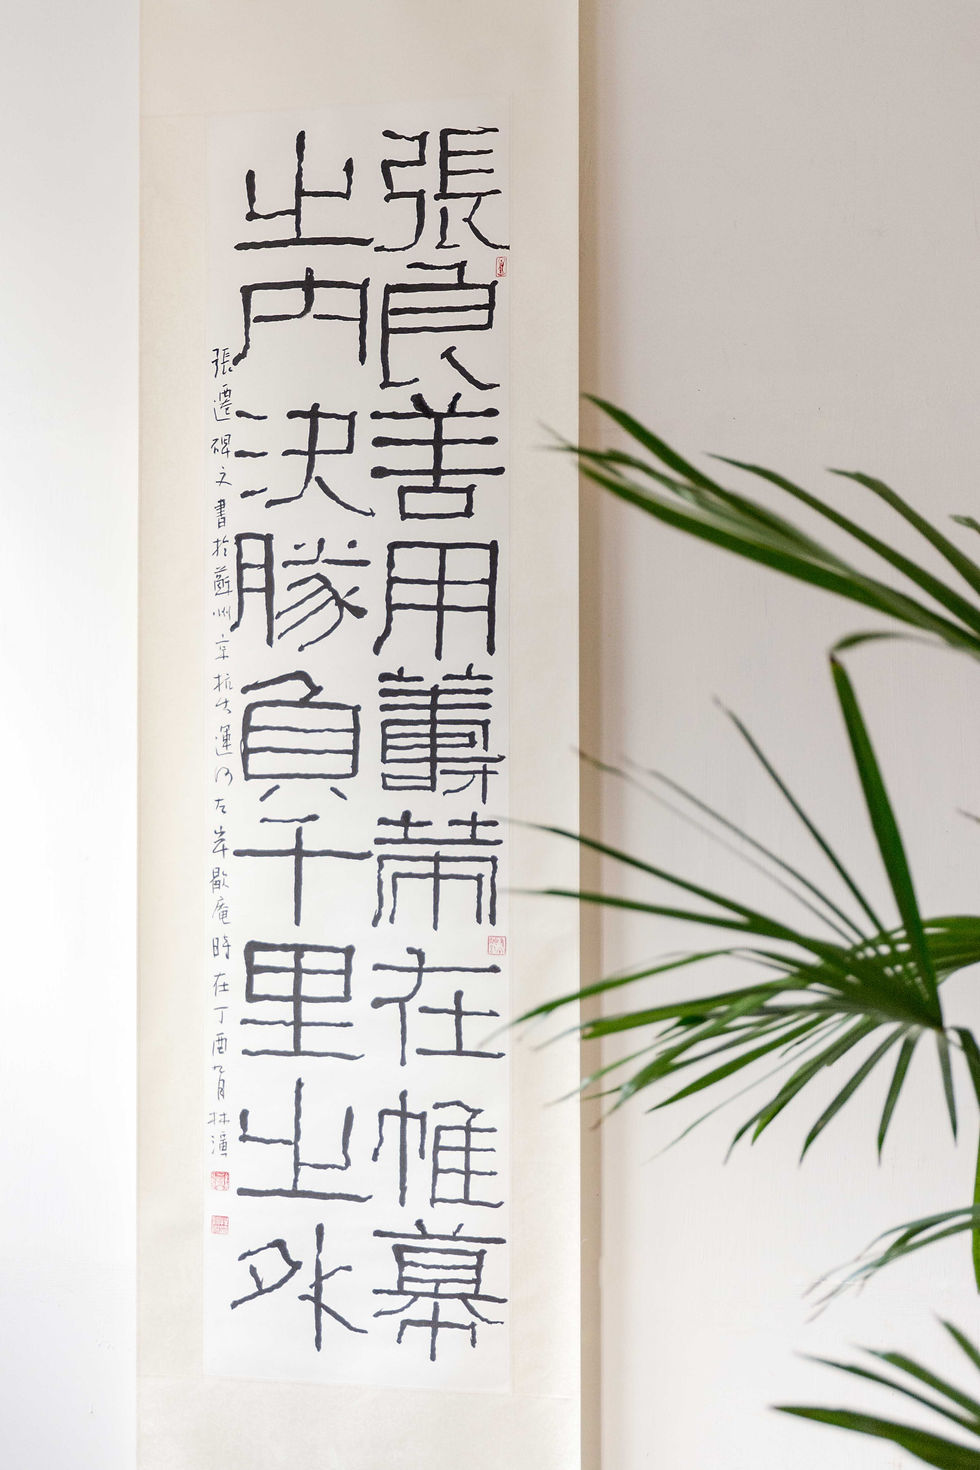 張良善用籌策在帷幕
之內決勝負千里之外
張遷碑文書於蘇州京杭大運河左岸歇庵時在丁酉九月林